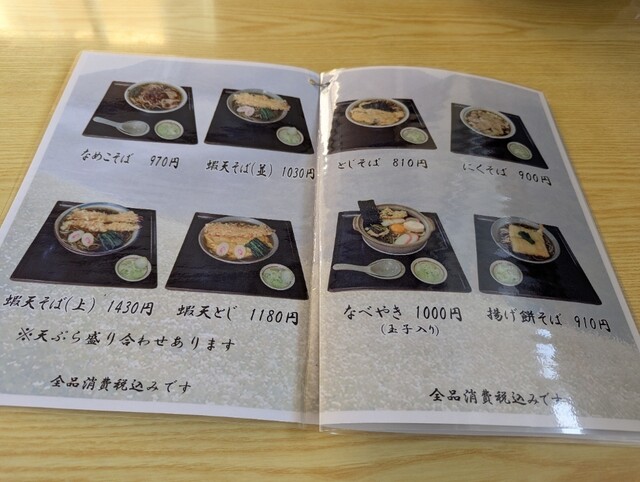 なめこそば 970円
蝦天そば(並) 1030円
蝦天そば(上) 1430円
蝦天とじ 1180円
※天ぷら盛り合わせあります
全品消費税込みです
とじそば 810円
にくそば 900円
なべやき 1000円
(玉子入り)
揚げ餅そば 910円
全品消費税込みです